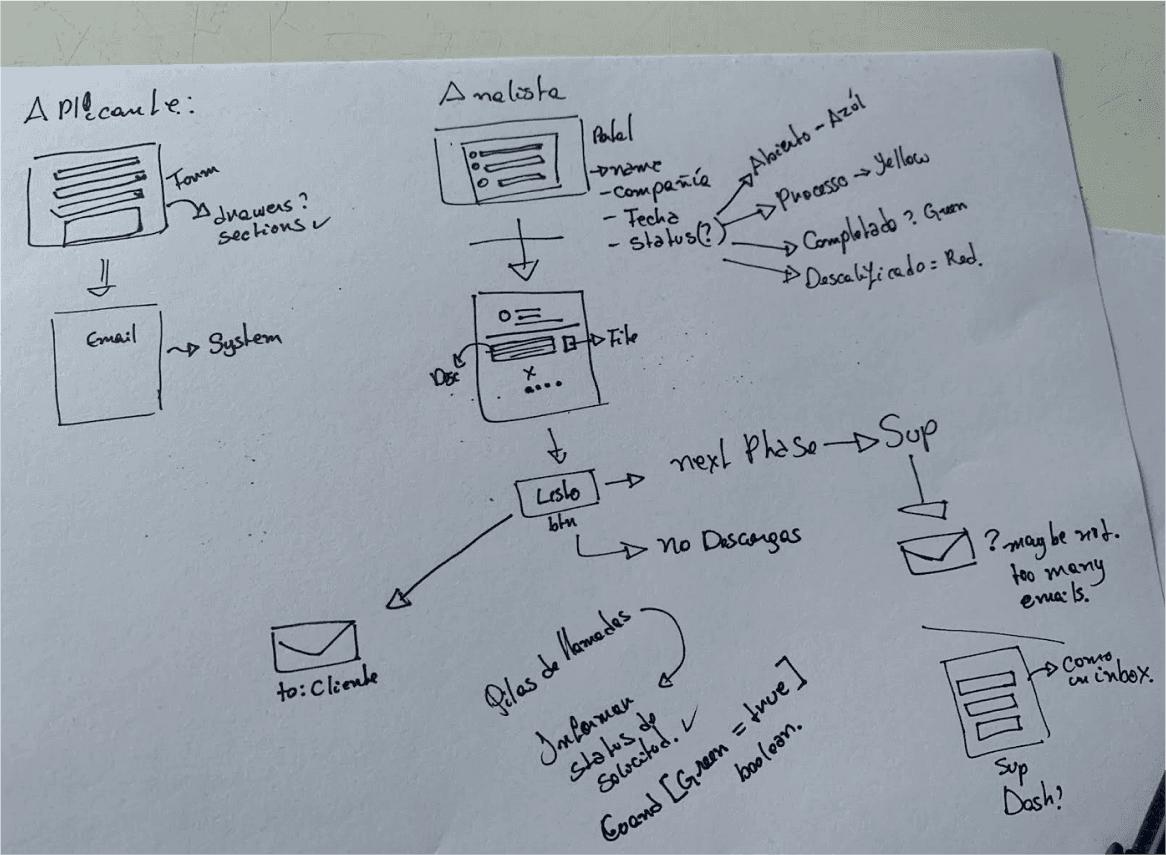 Aplicante:
Form
drawers?
sections ✓
Email
System
Analista
Portal
name
- Compañía
- Fecha
- status(?)
Abierto - Azúl
Processo → Yellow
Completado? Green
Descalificado = Red.
Desc
File
x
Listo
btn
next Phase
Sup
no Descargas
to: Cliente
? maybe not.
too many
emails.
Pilas de llamadas
Informar
status de
solicitud. ✓
[Green = true]
boolean.
como
un inbox.
Sup
Dash?